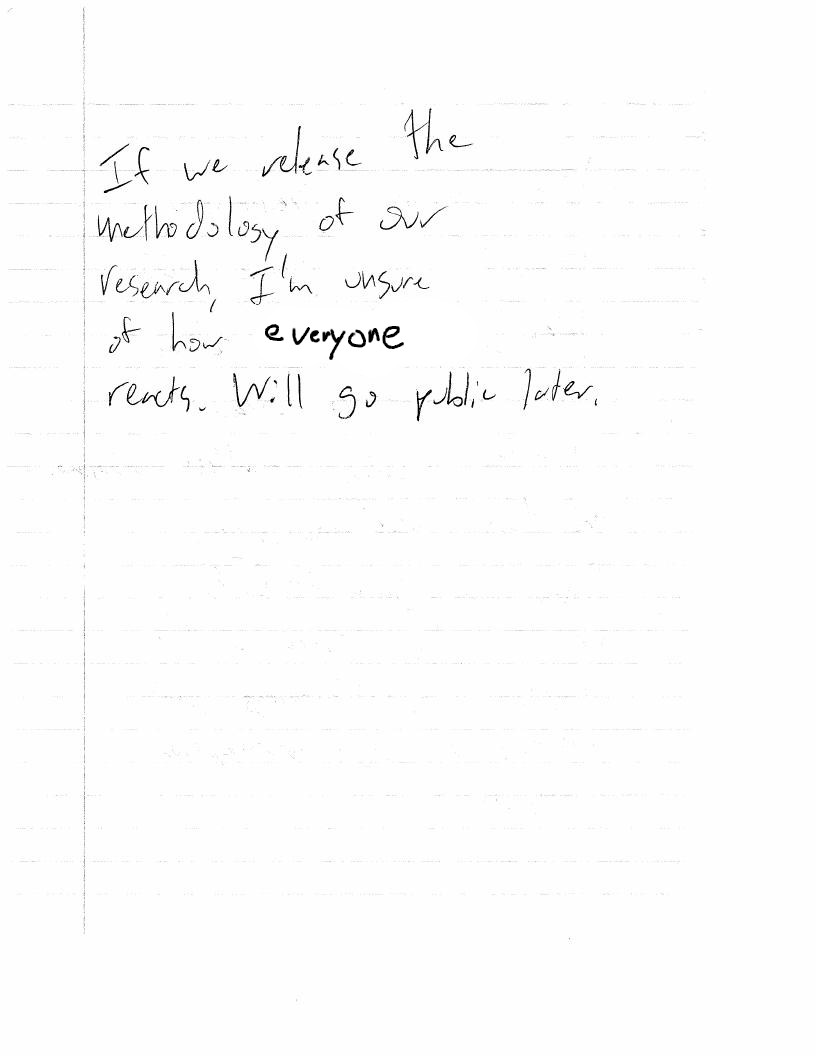 If we release the
methodology of our
research, I'm unsure
of how everyone
reacts. Will go public later.